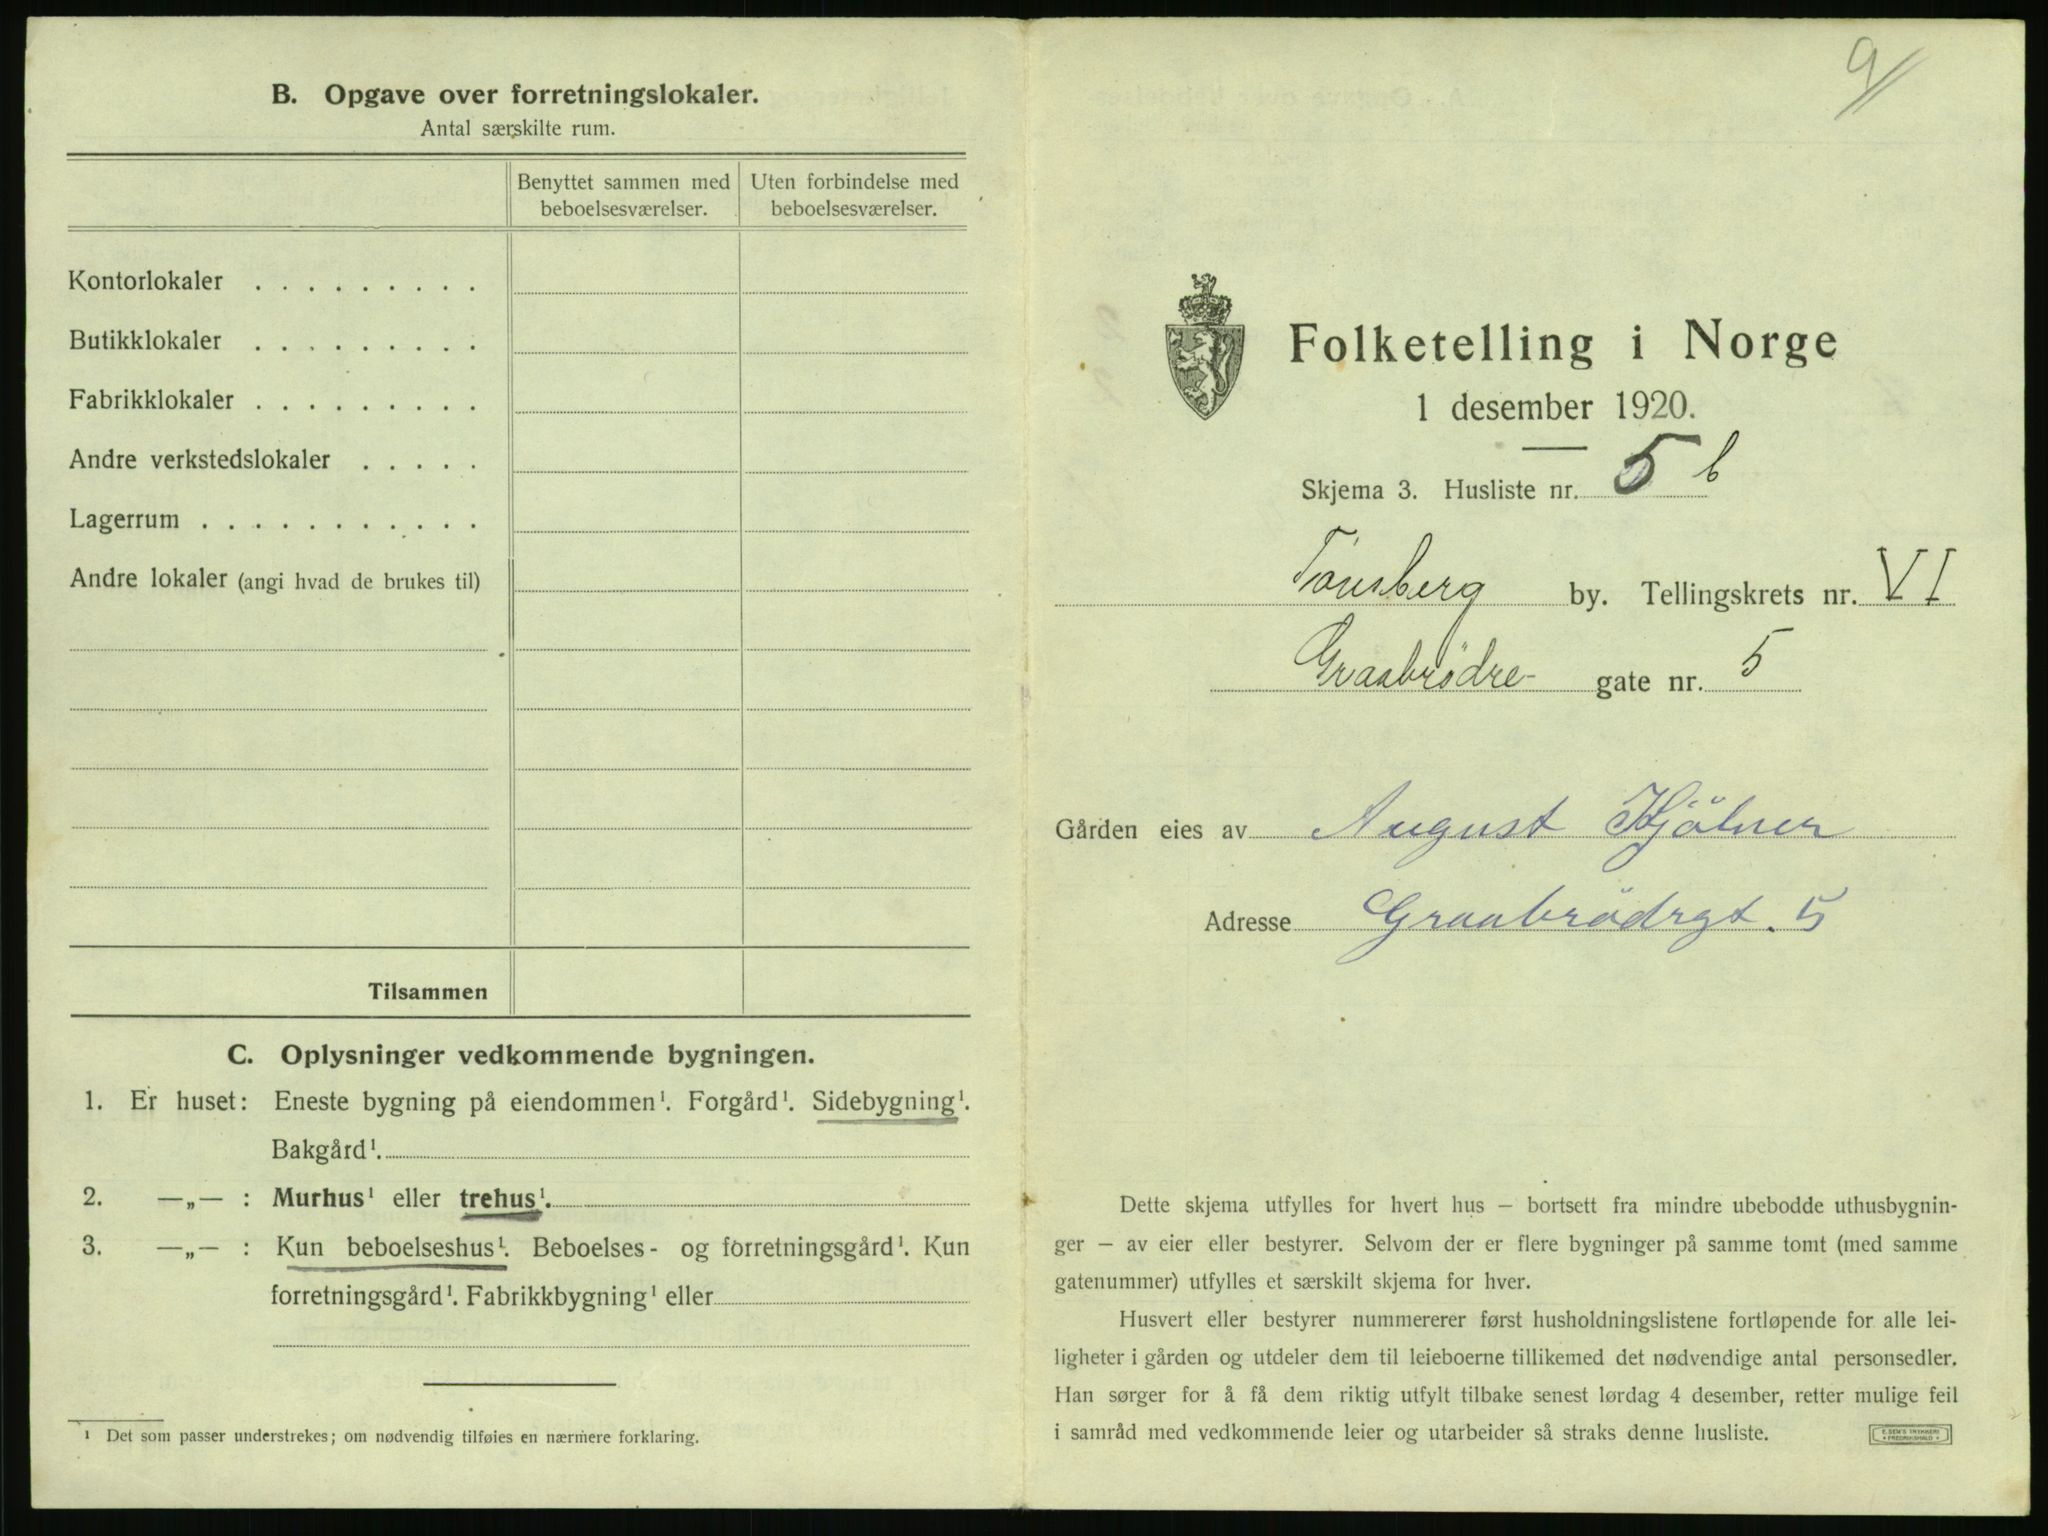 B. Opgave over forretningslokaler.
Antal særskilte rum.
Benyttet sammen med beboelsesværelser.
Uten forbindelse med beboelsesværelser.
Kontorlokaler . . . . . . . . .
Butikklokaler . . . . . . . . .
Fabrikklokaler . . . . . . . . .
Andre verkstedslokaler . . . . .
Lagerrum . . . . . . . . . . .
Andre lokaler (angi hvad de brukes til)
Tilsammen
C. Oplysninger vedkommende bygningen.
1. Er huset: Eneste bygning på eiendommen¹. Forgård¹. Sidebygning¹.
Bakgård¹.
2. —„— : Murhus¹ eller trehus¹.
3. —„— : Kun beboelseshus¹. Beboelses- og forretningsgård¹. Kun
forretningsgård¹. Fabrikkbygning¹ eller
¹ Det som passer understrekes; om nødvendig tilføies en nærmere forklaring.
9
Folketelling i Norge
1 desember 1920.
Skjema 3. Husliste nr. 5 b
Tönsberg by. Tellingskrets nr. VI
Graabrödre- gate nr. 5
Gården eies av August Kjölner
Adresse Graabrödrgt. 5
Dette skjema utfylles for hvert hus — bortsett fra mindre ubebodde uthusbygnin-
ger — av eier eller bestyrer. Selvom der er flere bygninger på samme tomt (med samme
gatenummer) utfylles et særskilt skjema for hver.
Husvert eller bestyrer nummererer først husholdningslistene fortløpende for alle lei-
ligheter i gården og utdeler dem til leieboerne tillikemed det nødvendige antal personsedler.
Han sørger for å få dem riktig utfylt tilbake senest lørdag 4 desember, retter mulige feil
i samråd med vedkommende leier og utarbeider så straks denne husliste.
E. SEM'S TRYKKERI
FREDRIKSHALD